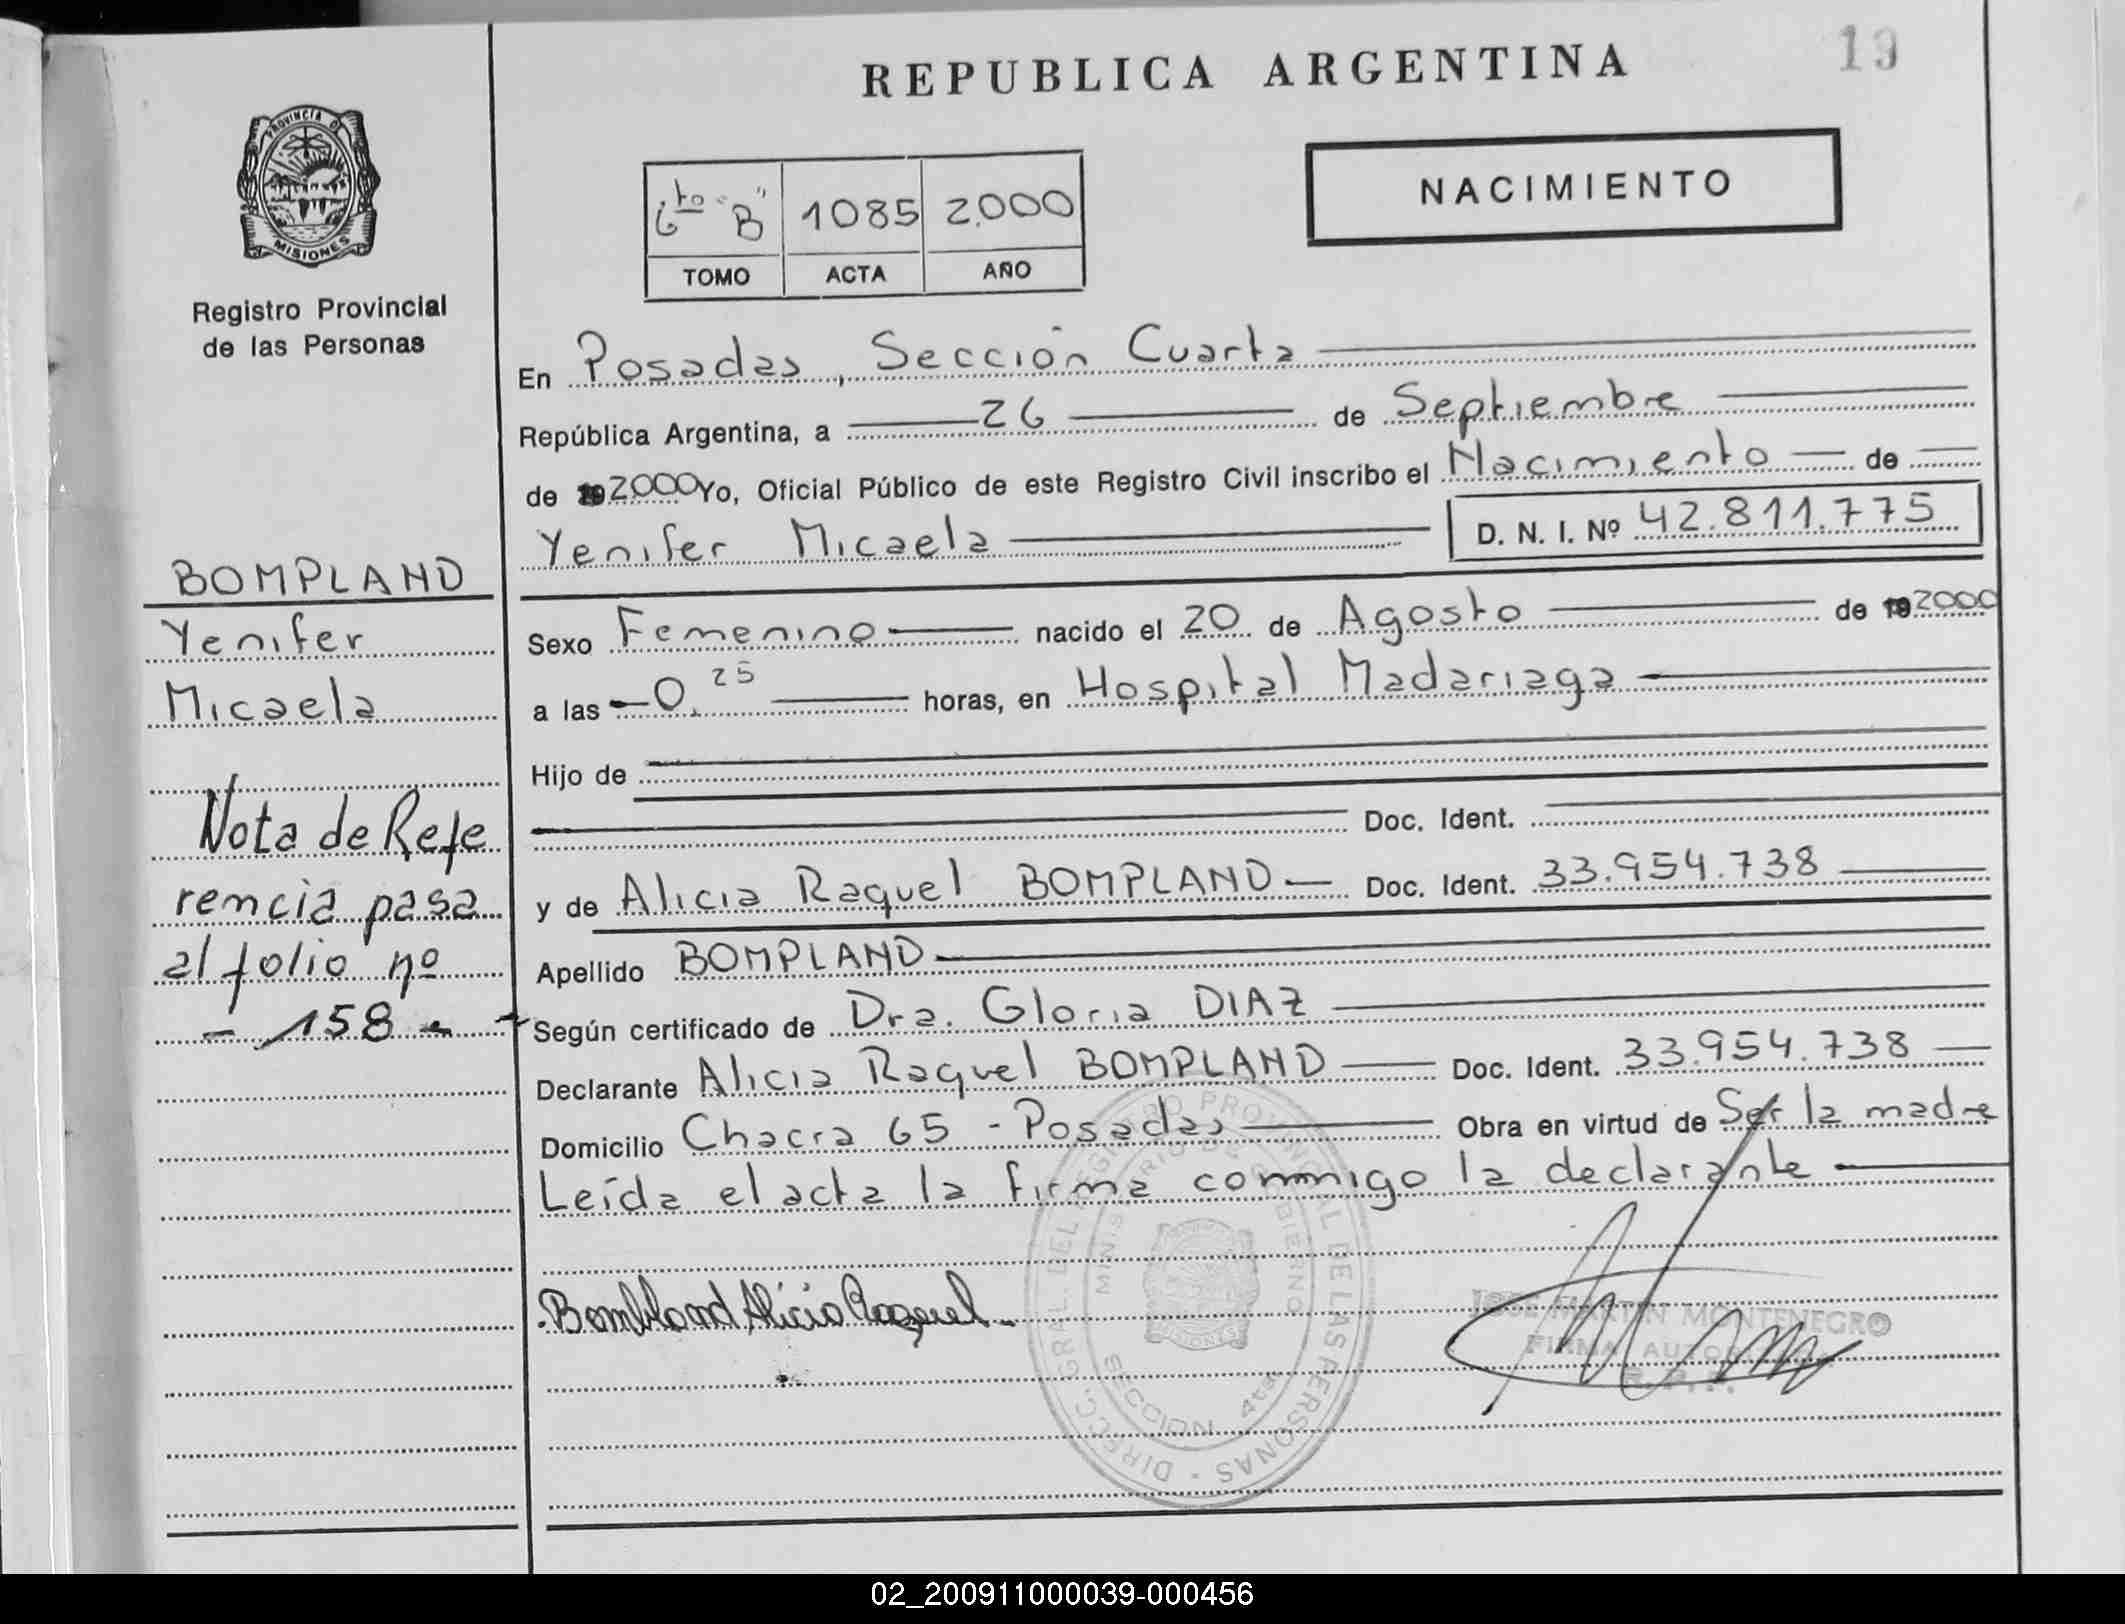 REPUBLICA ARGENTINA
19
PROVINCIA DE
MISIONES
Registro Provincial
de las Personas
6to "B" 1085 2.000
TOMO ACTA AÑO
NACIMIENTO
En Posadas, Sección Cuarta
República Argentina, a 26 de Septiembre
de 192000 Yo, Oficial Público de este Registro Civil inscribo el Nacimiento de
Yenifer Micaela D. N. I. Nº 42.811.775
Sexo Femenino nacido el 20 de Agosto de 192000
a las 0,25 horas, en Hospital Madariaga
Hijo de
Doc. Ident.
y de Alicia Raquel BOMPLAND Doc. Ident. 33.954.738
Apellido BOMPLAND
Según certificado de Dra. Gloria DIAZ
Declarante Alicia Raquel BOMPLAND Doc. Ident. 33.954.738
Domicilio Chacra 65 - Posadas Obra en virtud de Ser la madre
Leída el acta la firma conmigo la declarante
BOMPLAND
Yenifer
Micaela
Nota de Refe
rencia pasa
al folio nº
- 158 -
Bompland Alicia Raquel
DIRECC. GRAL. DEL REGISTRO PROVINCIAL DE LAS PERSONAS
MINISTERIO DE GOBIERNO
SECCION 4ta
JOSE MARTIN MONTENEGRO
FIRMA AUTORIZADA
02_200911000039-000456